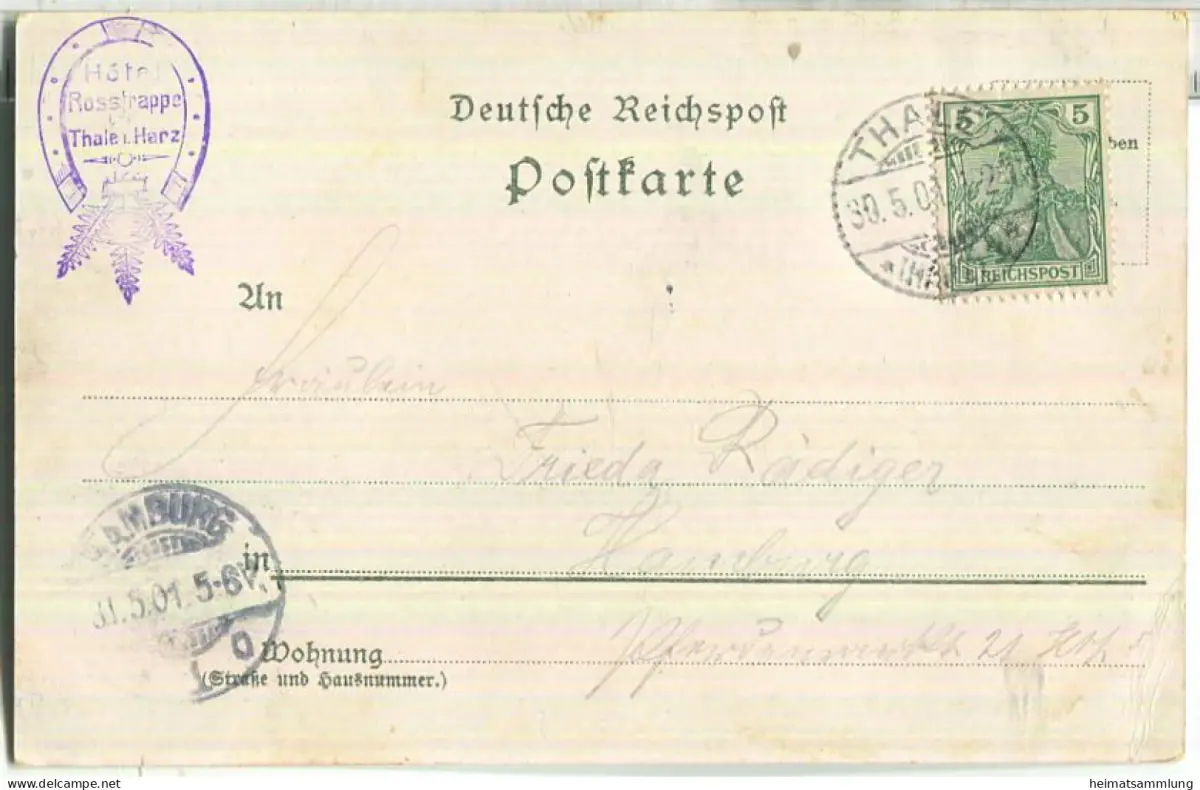 Hôtel
Rosstrappe
Thale i. Harz
Deutsche Reichspost
Postkarte
THALE
30.5.01
5 5
REICHSPOST
ben
An
Fräulein
Frieda Rädiger
in Hamburg
HAMBURG
31.5.01. 5-6V.
1
Wohnung Pferdemarkt 21
(Straße und Hausnummer.)
heimatsammlung.de